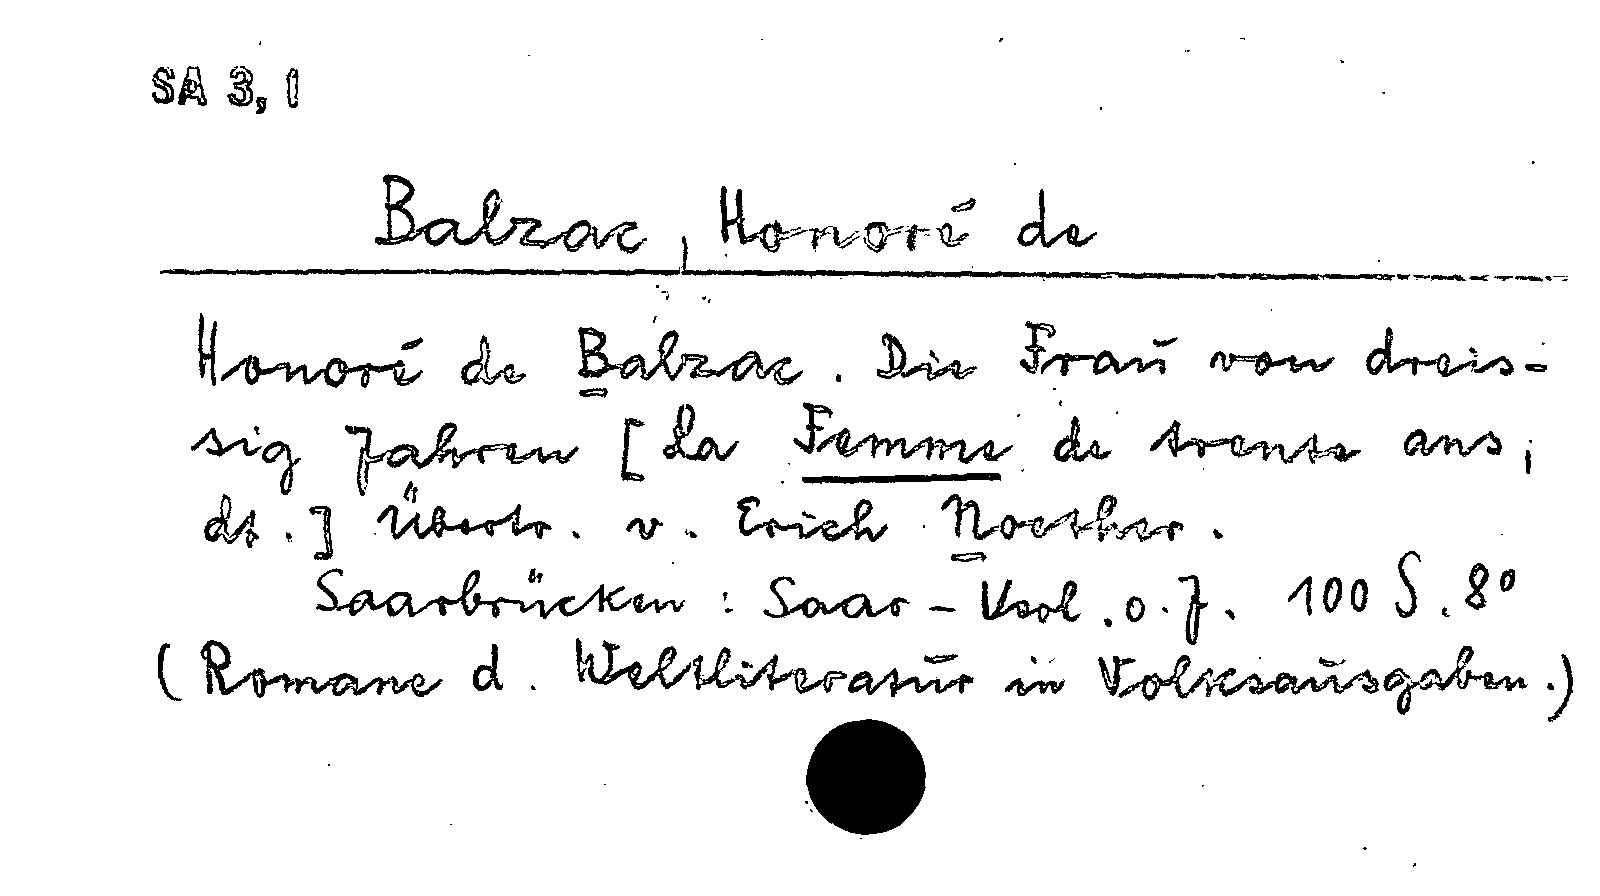 SA 3, 1
Balzac, Honoré de
Honoré de Balzac. Die Frau von dreis-
sig Jahren [La Femme de trente ans,
dt.] Übertr. v. Erich Noether.
Saarbrücken: Saar-Verl. o. J. 100 S. 8°
(Romane d. Weltliteratur in Volksausgaben.)